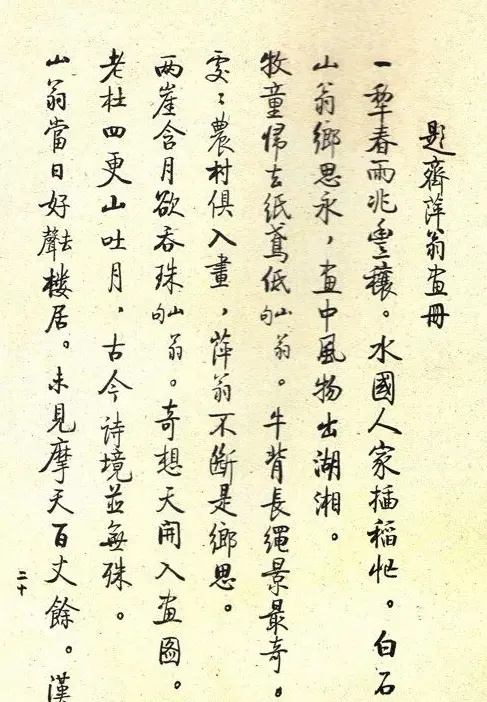 題齊萍翁画冊
一犁春雨兆豐穰。水國人家插稻忙。白石
山翁鄉思永，画中風物出湖湘。
牧童歸去紙鳶低山翁句。牛背長繩景最奇。
處〻農村俱入畫，萍翁不斷是鄉思。
两崖含月欲吞珠山翁句。奇想天開入画图。
老杜四更山吐月，古今詩境並無殊。
山翁當日好樓居。未見摩天百丈餘。漢
二十